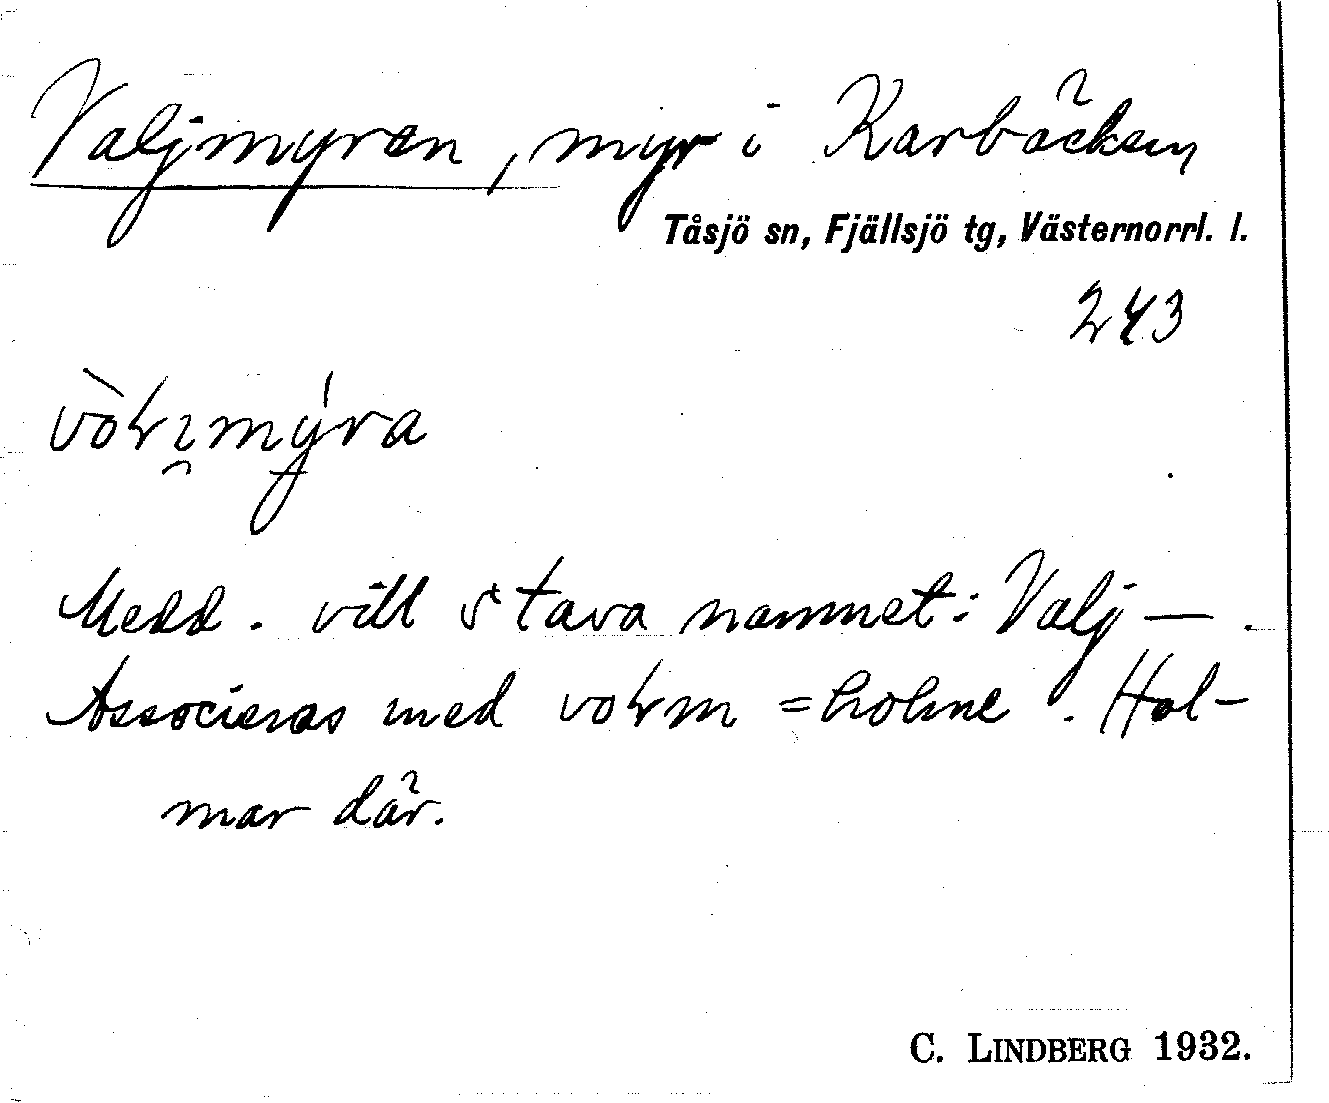 Valjmyren, myr i Karbäcken
Tåsjö sn, Fjällsjö tg, Västernorrl. l.
243
Medd. vill stava namnet: Valj—.
Associeras med = holme. Hol-
mar där.
C. LINDBERG 1932.